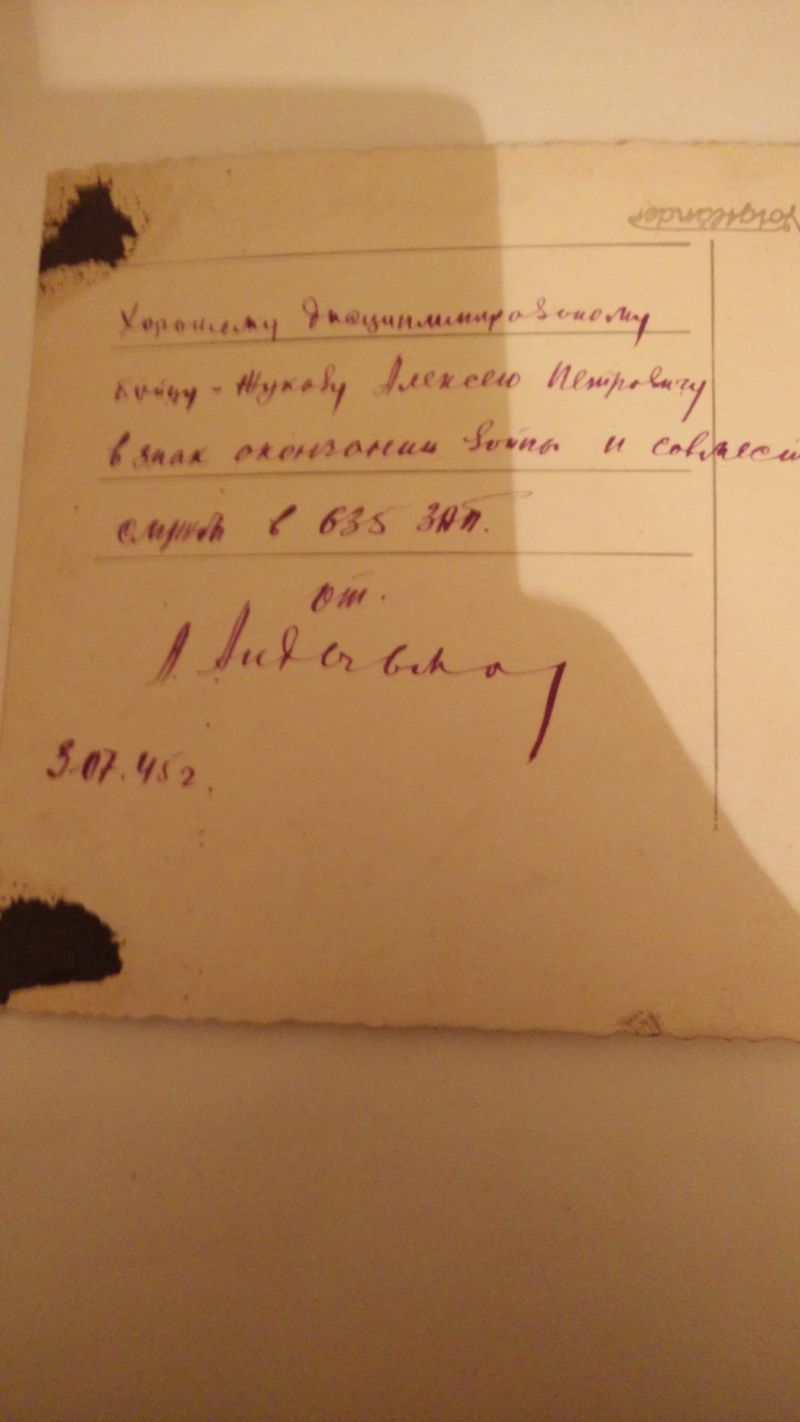 Voigtländer
Хорошему дисциплинированому
бойцу - Жукову Алексею Петровичу
в знак окончания войны и совмест
службы в 635 ЗАП.
от.
3.07.45 г.